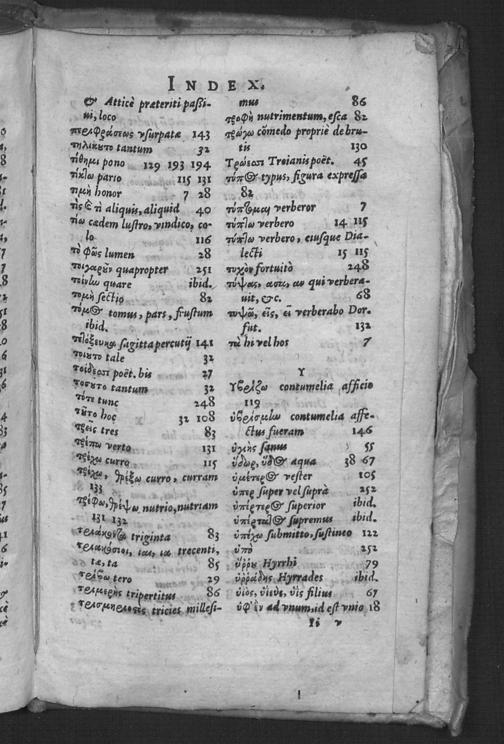 INDEX.
& Atticè præteriti passi-
ui, loco
περιφράσεως vsurpatæ 143
πηλικοῦτο tantum 32
τίθημι pono 129 193 194
τίκτω pario 115 131
τιμὴ honor 7 28
τὶς & τὶ aliquis, aliquid 40
τίω cædem lustro, vindico, co-
lo 116
τὸ φῶς lumen 28
τοιγαροῦν quapropter 251
τοίνυν quare ibid.
τομὴ sectio 82
τόμος tomus, pars, frustum
ibid.
sagitta percutij 141
τοιοῦτο tale 32
τοίδεσσι poët. his 27
τοσοῦτο tantum 32
τότε tunc 248
τοῦτο hoc 32 108
τρεῖς tres 83
τρέπω verto 131
τρέχω curro 115
τρέχω, θρέξω curro, curram
133
τρέφω, θρέψω nutrio, nutriam
131 132
τριάκοντα triginta 83
τριακόσιοι, αι, α trecenti,
ta, ta 85
τρίβω tero 29
τριμερὴς tripertitus 86
τρισμυριοστὸς tricies millesi-
mus 86
τροφὴ nutrimentum, esca 82
τρώγω cõmedo propriè de bru-
tis 130
Τρώεσσι Troianis poët. 45
τύπος typus, figura expressa
82
τύπτομαι verberor 7
τύπτω verbero 14 115
τύπτω verbero, eiusque Dia-
lecti 15 115
τυχὸν fortuitò 248
τύψας, ασα, αν qui verbera-
uit, &c. 68
τυψῶ, εῖς, εῖ verberabo Dor.
fut. 132
τὼ hi vel hos 7
Υ
Ὑβρίζω contumelia afficio
119
ὑβρίσμην contumelia affe-
ctus fueram 146
ὑγιὴς sanus 55
ὕδωρ, ὕδος aqua 38 67
ὑμέτερος vester 105
ὑπὲρ super vel suprà 252
ὑπέρτερος superior ibid.
ὑπέρτατος supremus ibid.
ὑπέχω submitto, sustineo 122
ὑπὸ 252
ὕρρου Hyrrhi 79
ὑρράδης Hyrrades ibid.
υἱὸς, υἱεὺς, υἷς filius 67
ὑφ' ἓν ad vnum, id est vnio 18
Ii v